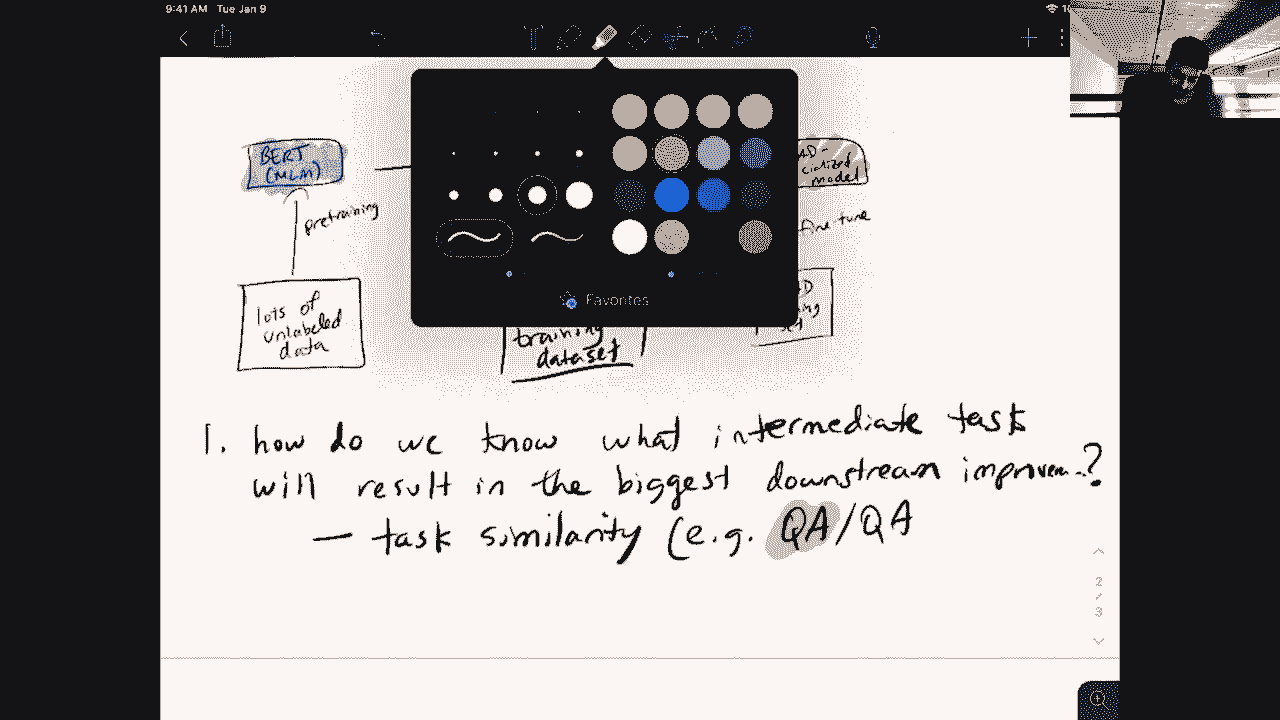 9:41 AM Tue Jan 9
BERT
(MLM)
pretraining
lots of
unlabeled
data
Favorites
training
dataset
model
fine-tune
1. how do we know what intermediate task
will result in the biggest downstream improvem..?
— task similarity (e.g. QA/QA
2
/
3